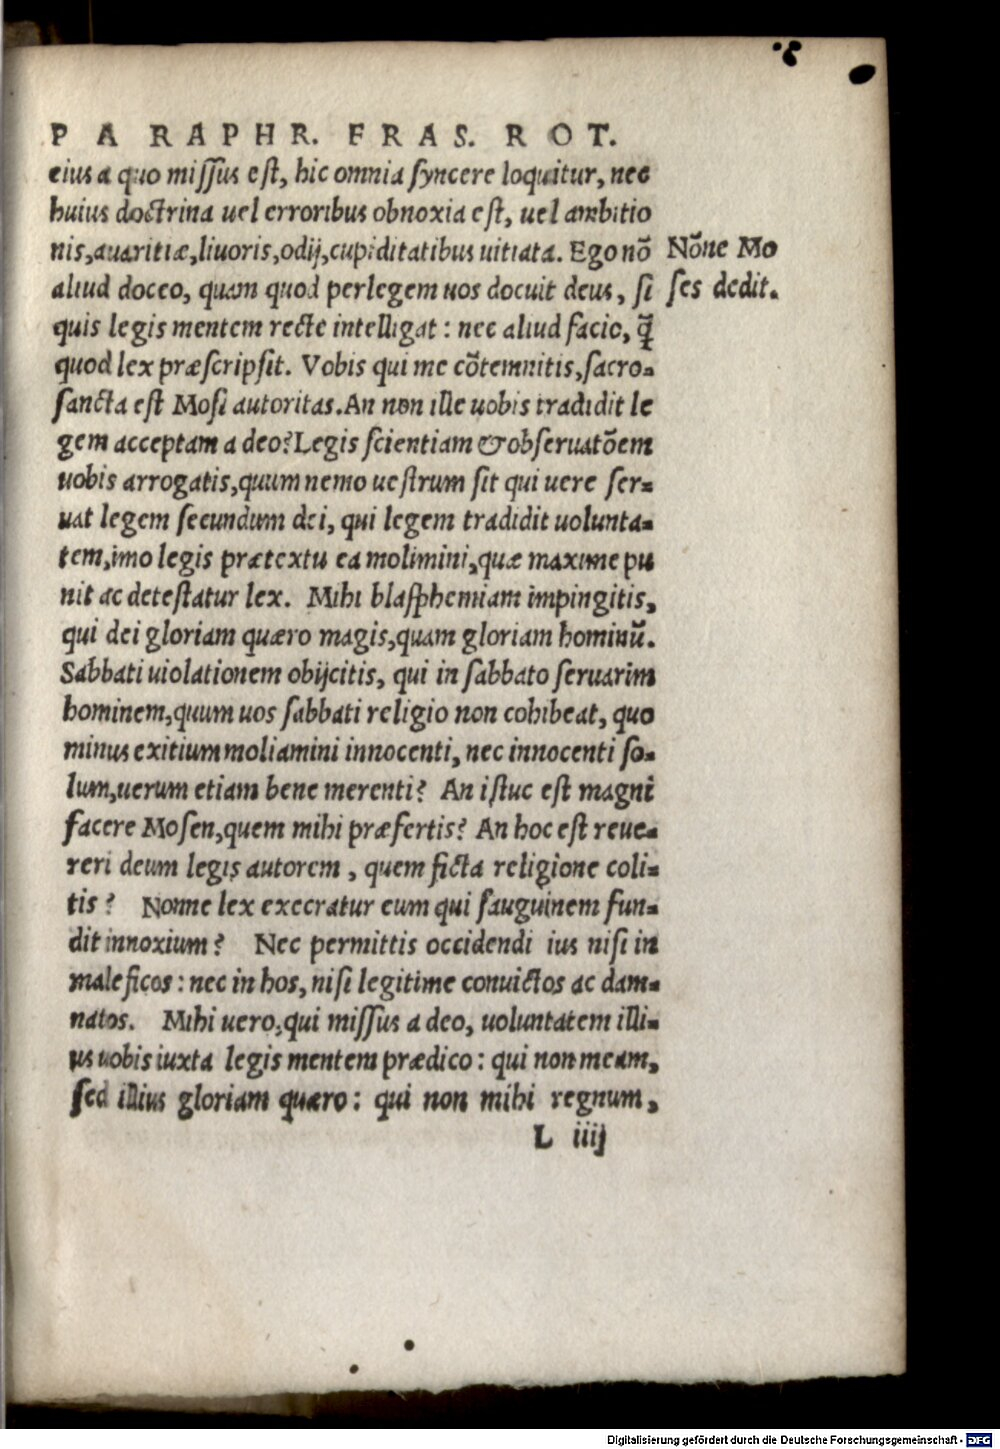 PARAPHR. FRAS. ROT.
eius a quo miſſus eſt, hic omnia ſyncere loquitur, nec
huius doctrina uel erroribus obnoxia eſt, uel ambitio
nis, auaritiæ, liuoris, odij, cupiditatibus uitiata. Ego nō
Nōne Mo
aliud doceo, quam quod per legem uos docuit deus, ſi
ſes dedit.
quis legis mentem recte intelligat: nec aliud facio, q̄
quod lex præſcripſit. Vobis qui me cōtemnitis, ſacro-
ſancta eſt Moſi autoritas. An non ille uobis tradidit le
gem acceptam a deo? Legis ſcientiam & obſeruatōem
uobis arrogatis, quum nemo ueſtrum ſit qui uere ſer-
uat legem ſecundum dei, qui legem tradidit uolunta-
tem, imo legis prætextu ea molimini, quæ maxime pu
nit ac deteſtatur lex. Mihi blaſphemiam impingitis,
qui dei gloriam quæro magis, quam gloriam hominū.
Sabbati uiolationem obijcitis, qui in ſabbato ſeruarim
hominem, quum uos ſabbati religio non cohibeat, quo
minus exitium moliamini innocenti, nec innocenti ſo-
lum, uerum etiam bene merenti? An iſtuc eſt magni
facere Moſen, quem mihi præfertis? An hoc eſt reue-
reri deum legis autorem, quem ficta religione coli-
tis? Nonne lex execratur eum qui ſauguinem fun-
dit innoxium? Nec permittis occidendi ius niſi in
maleficos: nec in hos, niſi legitime conuictos ac dam-
natos. Mihi uero, qui miſſus a deo, uoluntatem illi-
us uobis iuxta legis mentem prædico: qui non meam,
ſed illius gloriam quæro: qui non mihi regnum,
L iiij
Digitalisierung gefördert durch die Deutsche Forschungsgemeinschaft - DFG